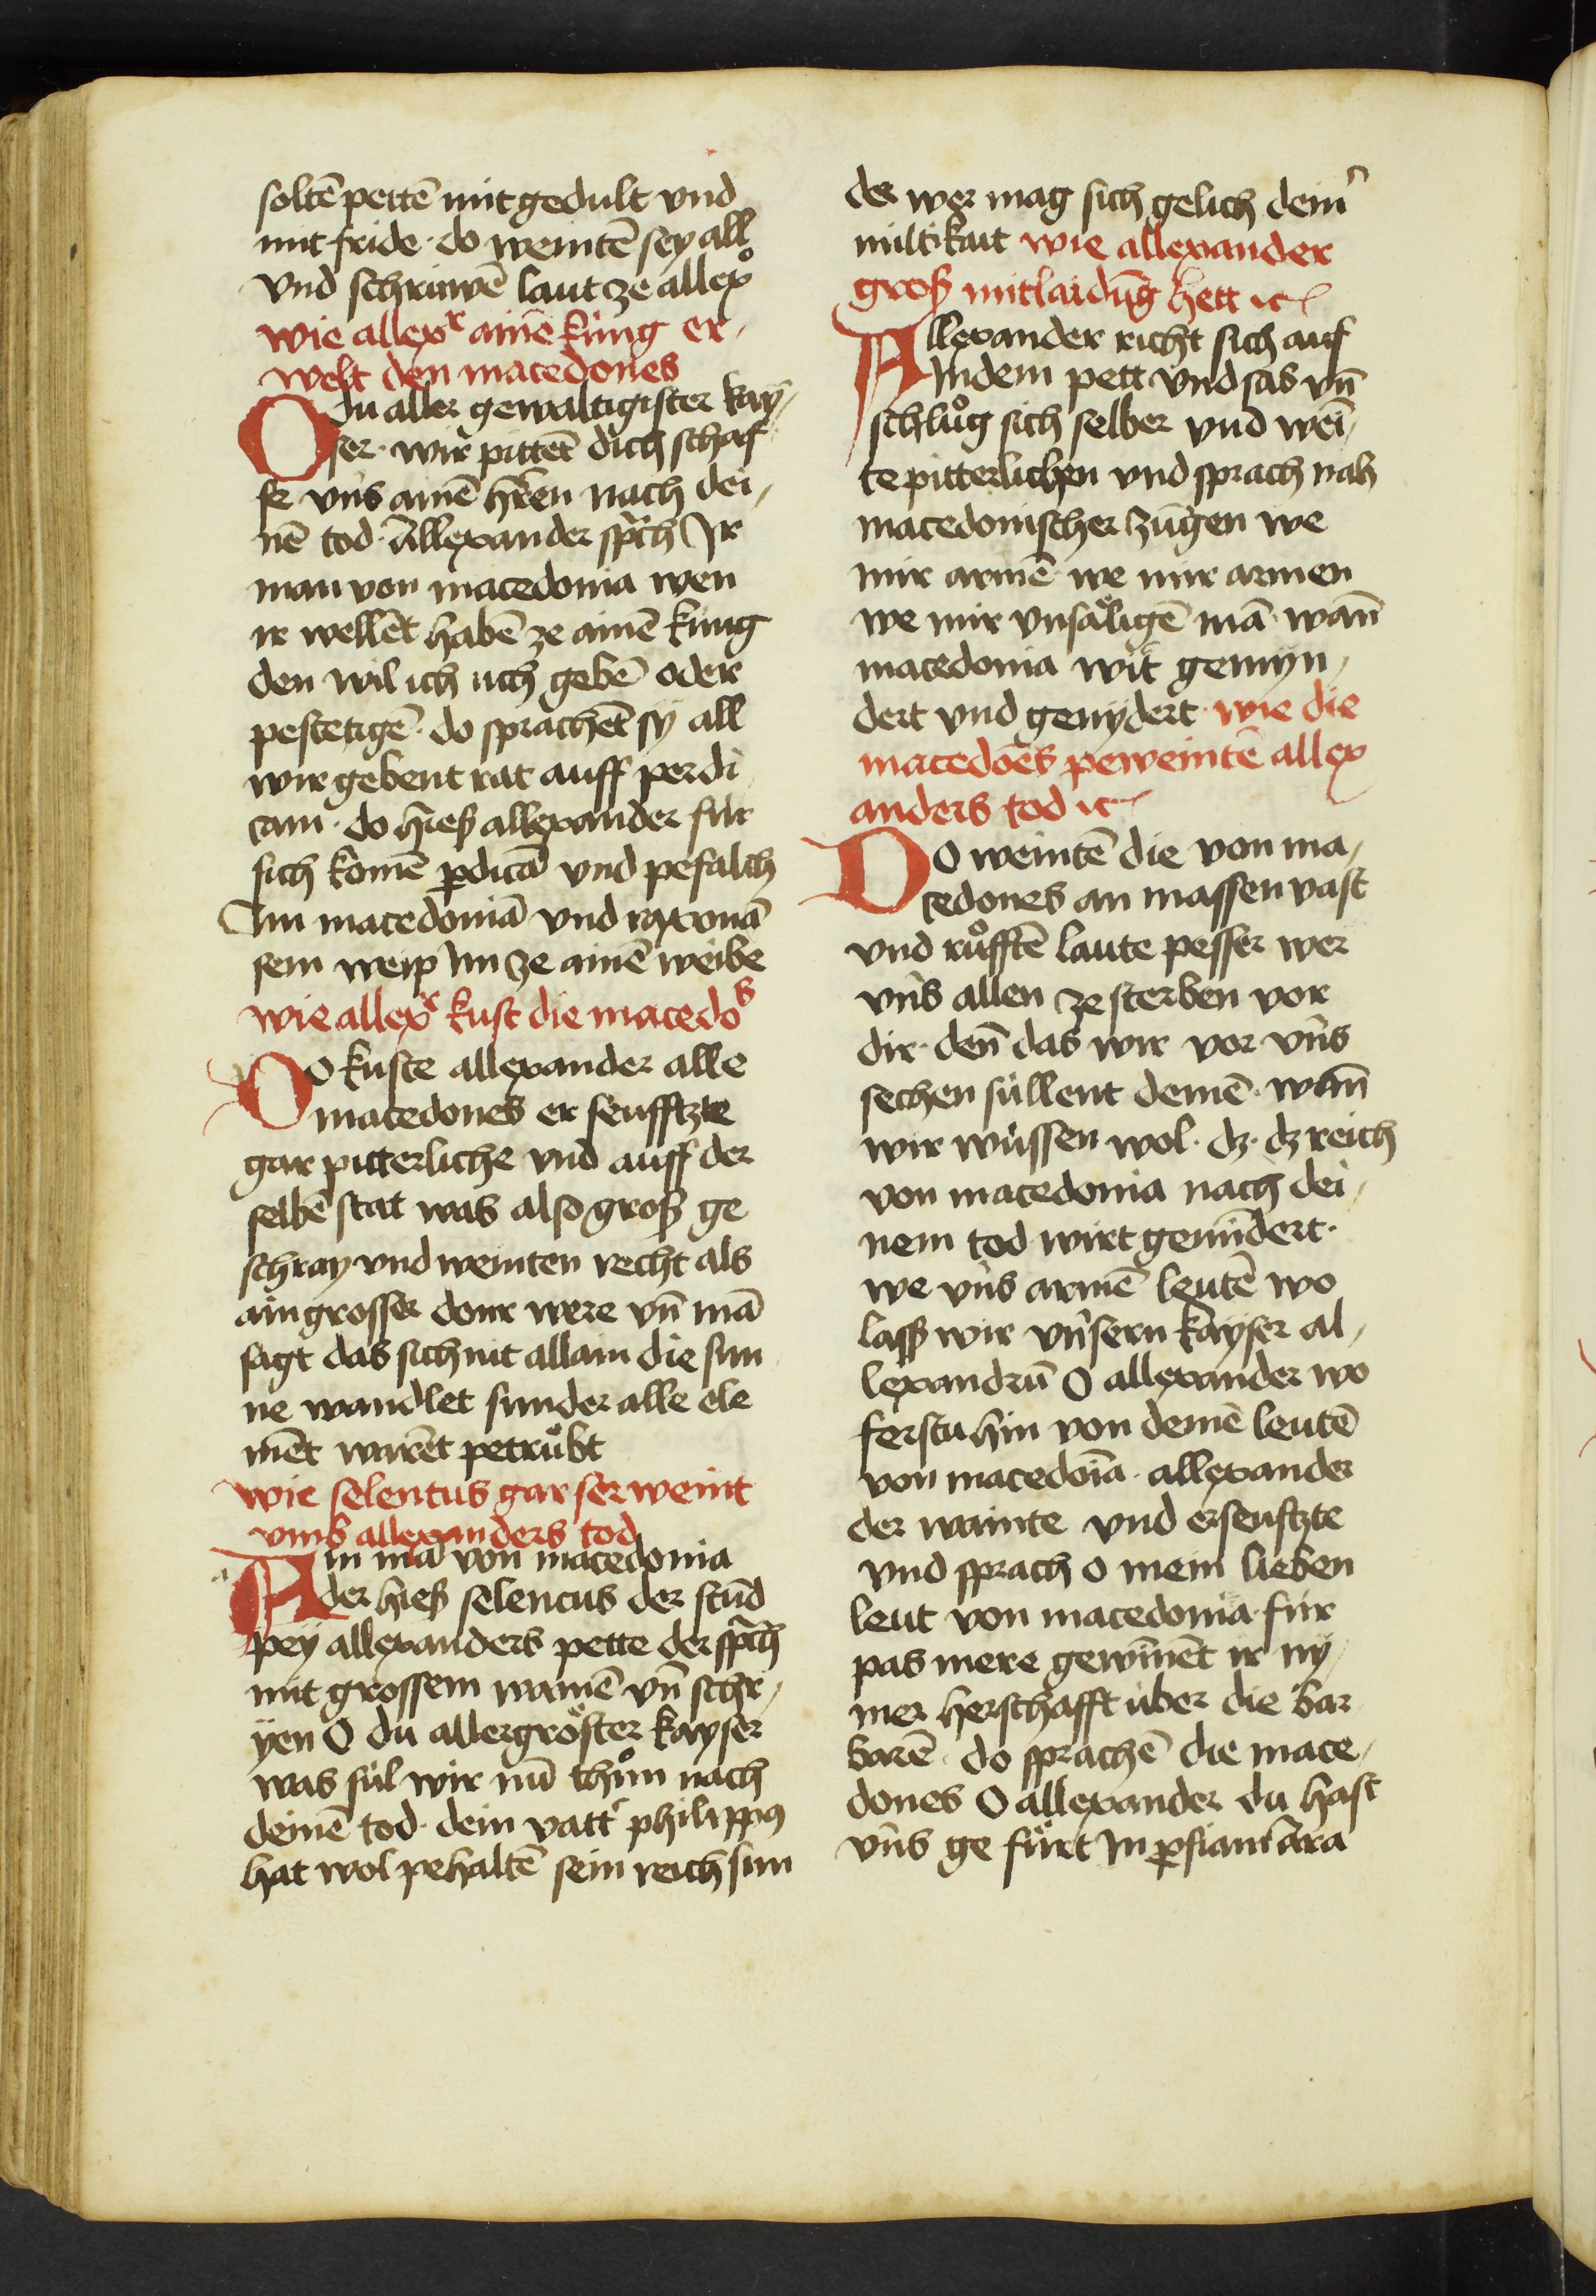 soltē pettē mit gedult vnd
mit fride · do weintē sey all
vnd schriuwē laut ze allexͦ
wie allexr ainē kúng er-
welt den macedones
O du aller gewaltigister kay-
ser · wir pittēt dich schaf
fe vns ainē hrēn nach dei-
nē tod · Allexander sprach Ir
man von macedonia wen
ir wellēt habē ze ainē kúng
den wil ich uch gebē oder
pestetigē · do sprachēt sÿ all
wir gebent rat auff perdi
cam · do hies allexander fúr
sich komē ꝑdicā vnd pefalch
Im macedoniā vnd roxonā
sein weip Im ze ainē weibe
wie allexr kust die macedos
Do kuste allexander alle
macedones er seufftzte
gar pitterliche vnd auff der
selbē stat was also groß ge
schray vnd weinten recht als
ain grosser donr were vn̄ mā
sagt das sich nit allain die sun
ne wandlet sunder alle ele
mēt warēt petruͦbt
wie selentus gar ser weint
vmb allexanders tod
Ain mā von macedonia
der hieß selencus der stūd
pey allexanders pette der sprach
mit grossem wainē vn̄ schr-
yen O du allergröster kayser
was súl wir nū thuͦn nach
deinē tod · dein vatt' philippꝰ
hat wol pehaltē sein reich sun
der wer mag sich gelich dein'
miltikait wie allexander
groß mitlaidūg hett ⁊c
Allexander richt sich auf
In dem pett vnd sas vn̄
schluͦg sich selber vnd wei-
te pitterlichen vnd sprach nah
macedonischer zūgen we
mir armē we mir armen
we mir vnsäligē mā wan̄
macedonia wirt gemyn-
dert vnd genydert · wie die
macedoēs peweintē allex
anders tod ⁊c
DO weintē die von ma-
cedones an massen vast
vnd ruͦfftē laute pesser wer
vns allen ze sterben vor
dir · den̄ das wir vor vns
sechen súllent deinē · wan̄
wir wússen wol · dz · dz reich
von macedonia nach dei-
nem tod wirt gemīdert ·
we vns armē leutē wo
lass wir vnsern kayser al-
lexandrū O allexander wo
ferstu hin von deinē leutē
von macedoīa · allexander
der wainte vnd erseuftzte
vnd sprach o mein lieben
leut von macedonia fúr
pas mere gewīnēt ir ny-
mer herschafft úber die bar
barē · do sprachē die mace-
dones O allexander du hast
vns ge fúrt In ꝑsiam ara